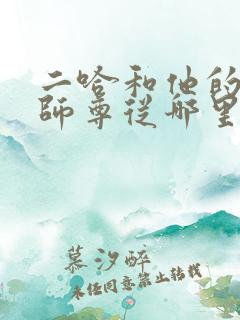 二哈和他的
師尊從哪里
慕汐醉
未经同意禁止转载